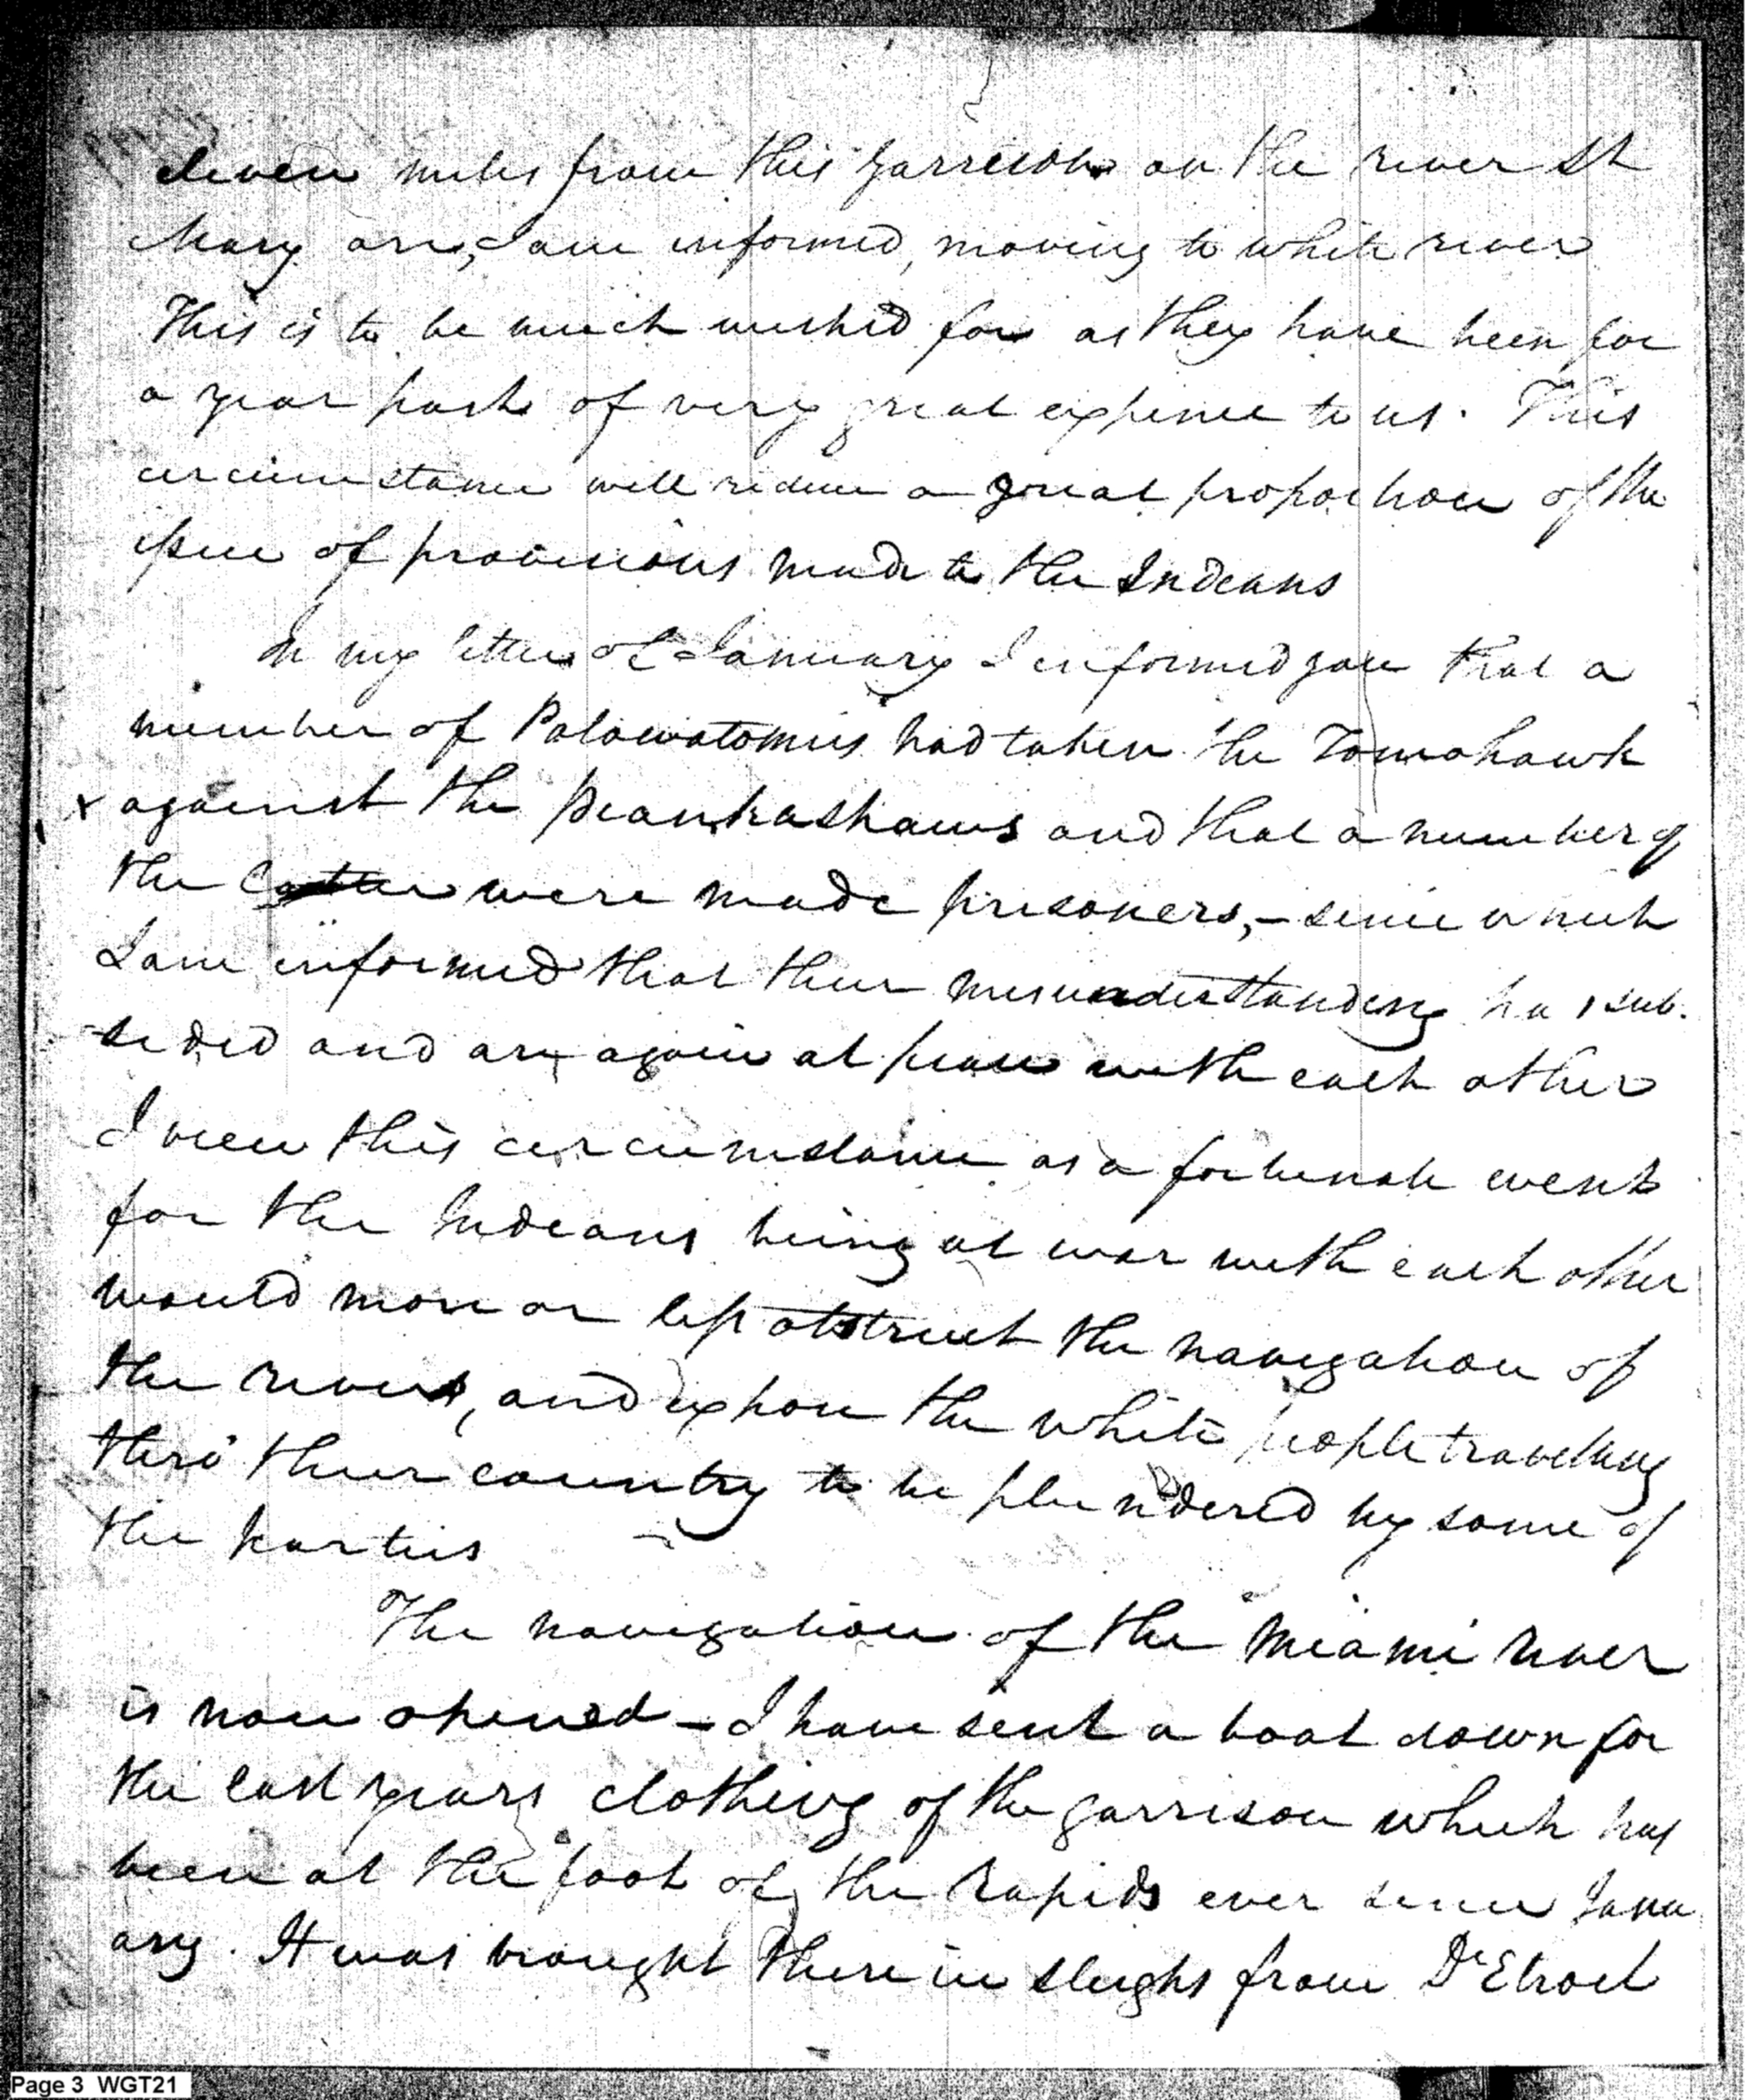 eleven miles from this garrison on the river St
Mary are, I am informed, moving to white river
This is to be much wished for as they have been for
a year past of very great expence to us. This
circumstance will reduce a great proportion of the
issue of provisions made to the Indians
In my letter of January I informed you that a
number of Potowotomies had taken the Tomahawk
x against the peankashaws and that a number of
the latter were made prisoners, - since which
I am informed that their misunderstanding has sub-
-sided and are again at peace with each other
I view this circumstance as a fortunate event
for the Indians being at war with each other
would more or less obstruct the navigation of
the rivers, and expose the white people travelling
thro' their country to be plundered by some of
the parties
The navigation of the Miami river
is now opened - I have sent a boat down for
the last years clothing of the garrison which has
been at the foot of the Rapids ever since Janu
ary. It was brought there in sleighs from DeEtroit
Page 3 WGT21